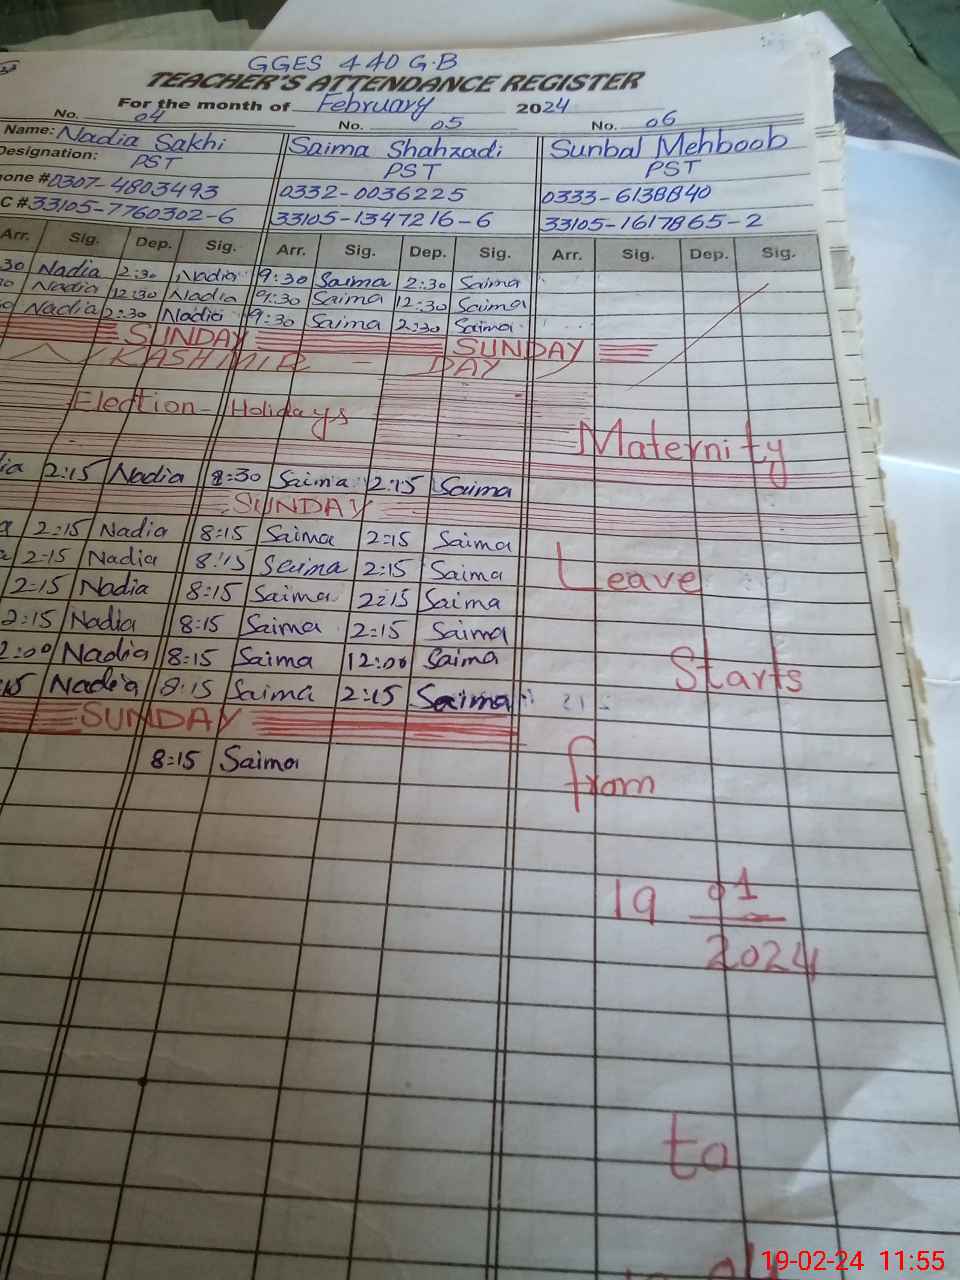 GGES 440 G.B
TEACHER'S ATTENDANCE REGISTER
For the month of February 2024
No. 04 No. 05 No. 06
Name: Nadia Sakhi Saima Shahzadi Sunbal Mehboob
Designation: PST PST PST
one #0307-4803493 0332-0036225 0333-6138840
C #33105-7760302-6 33105-1347216-6 33105-1617865-2
Arr. Sig. Dep. Sig. Arr. Sig. Dep. Sig. Arr. Sig. Dep. Sig.
30 Nadia 2:30 Nadia 9:30 Saima 2:30 Saima
Nadia 12:30 Nadia 9:30 Saima 12:30 Saima
Nadia 2:30 Nadia 9:30 Saima 2:30 Saima
SUNDAY SUNDAY
KASHMIR - DAY
Election - Holidays
Maternity
ia 2:15 Nadia 8:30 Saima 2:15 Saima
SUNDAY
a 2:15 Nadia 8:15 Saima 2:15 Saima
2:15 Nadia 8:15 Saima 2:15 Saima
Leave
2:15 Nadia 8:15 Saima 2:15 Saima
2:15 Nadia 8:15 Saima 2:15 Saima
2:00 Nadia 8:15 Saima 12:00 Saima
Starts
15 Nadia 8:15 Saima 2:15 Saima
SUNDAY
8:15 Saima
from
19 01
2024
to
19-02-24 11:55